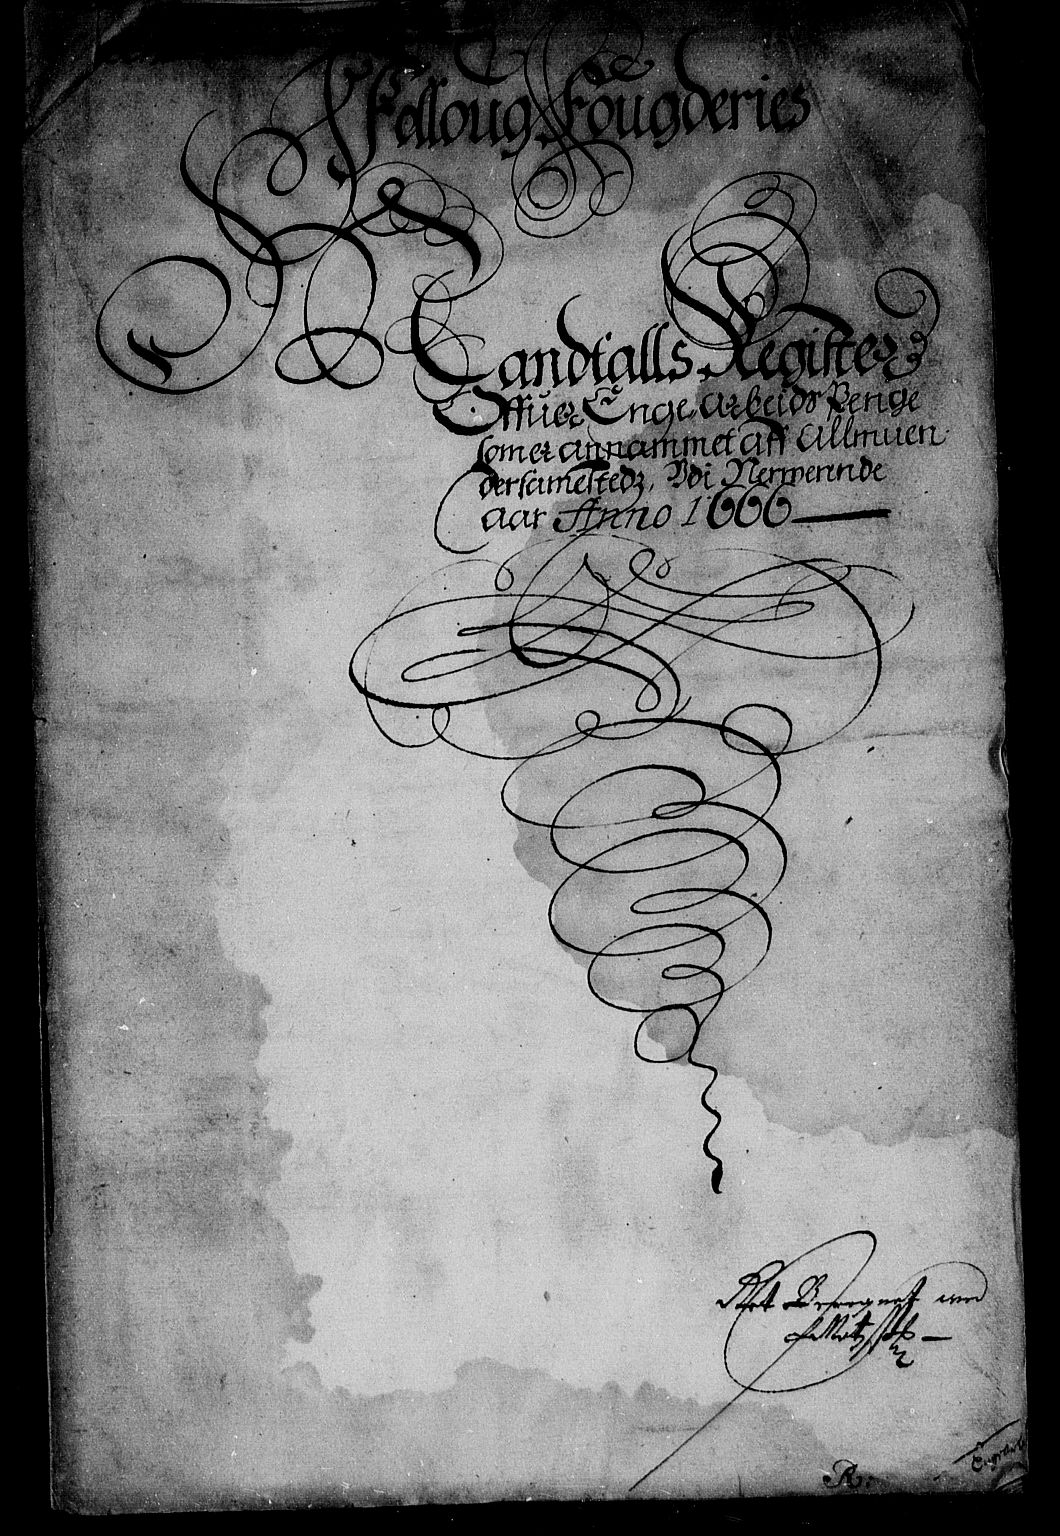 Falloug Fougderies
Mandtalls Register
Offuer Enge Arbeids Penge
som er annammet aff Allmuen
dersamestedz, Udi Nerwerinde
aar Anno 1666
Ret Beregnet med
R: